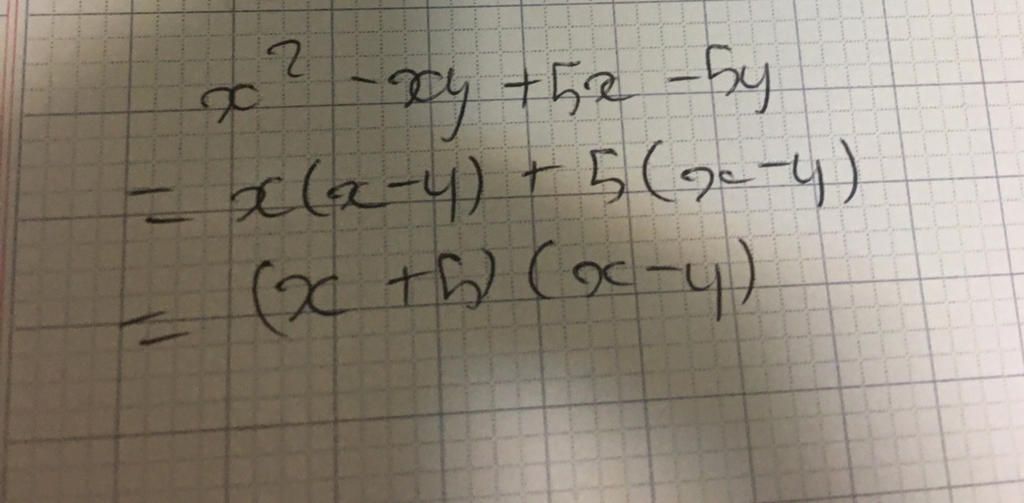 x² - xy + 5x - 5y
= x(x - y) + 5(x - y)
= (x + 5)(x - y)